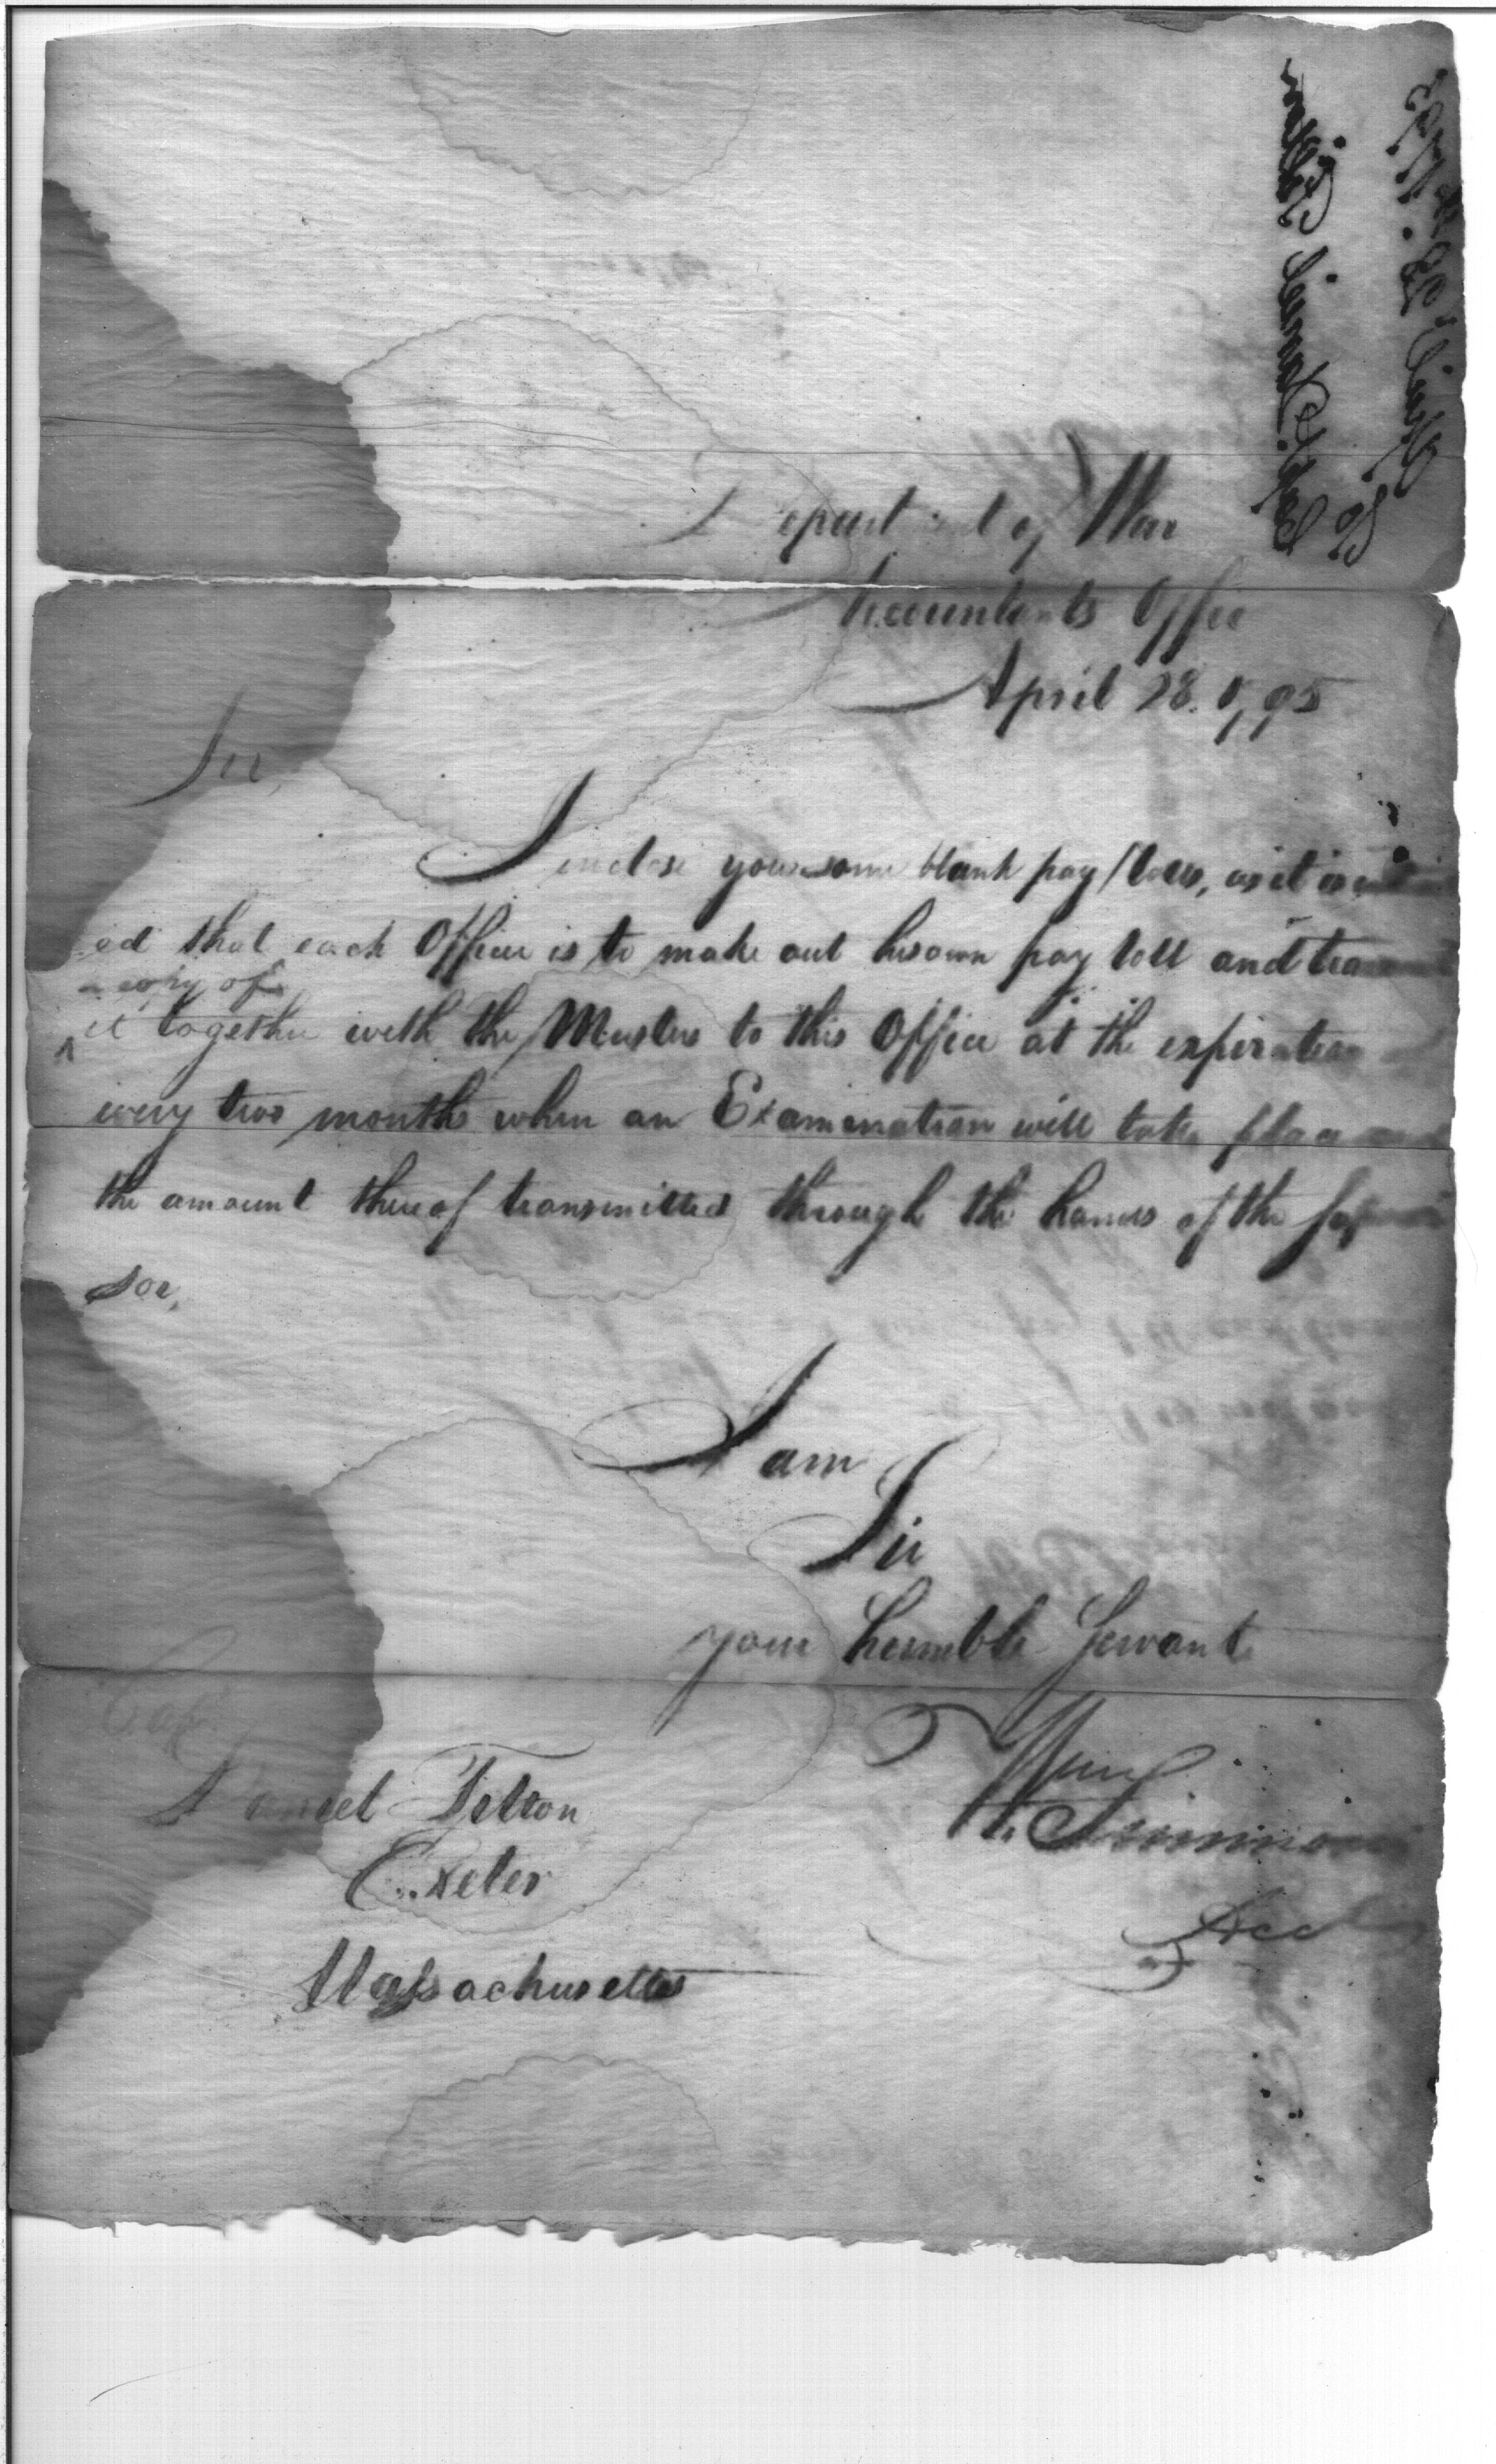 To
Capt. Daniel Tilton
April 28th 1795
Department of War
Accountants Office
April 28. 1795
Sir,
I inclose you some blank pay rolls, as it is
ed that each Officer is to make out his own pay roll and
a copy of
it together with the Musters to this Office at the expiration
every two months when an Examination will take place
the amount thereof transmitted through the hands of the
sor,
I am
Sir
your humble Servant
Wm
Simmons
Acct
Capt
Daniel Telton
Exeter
Massachusetts